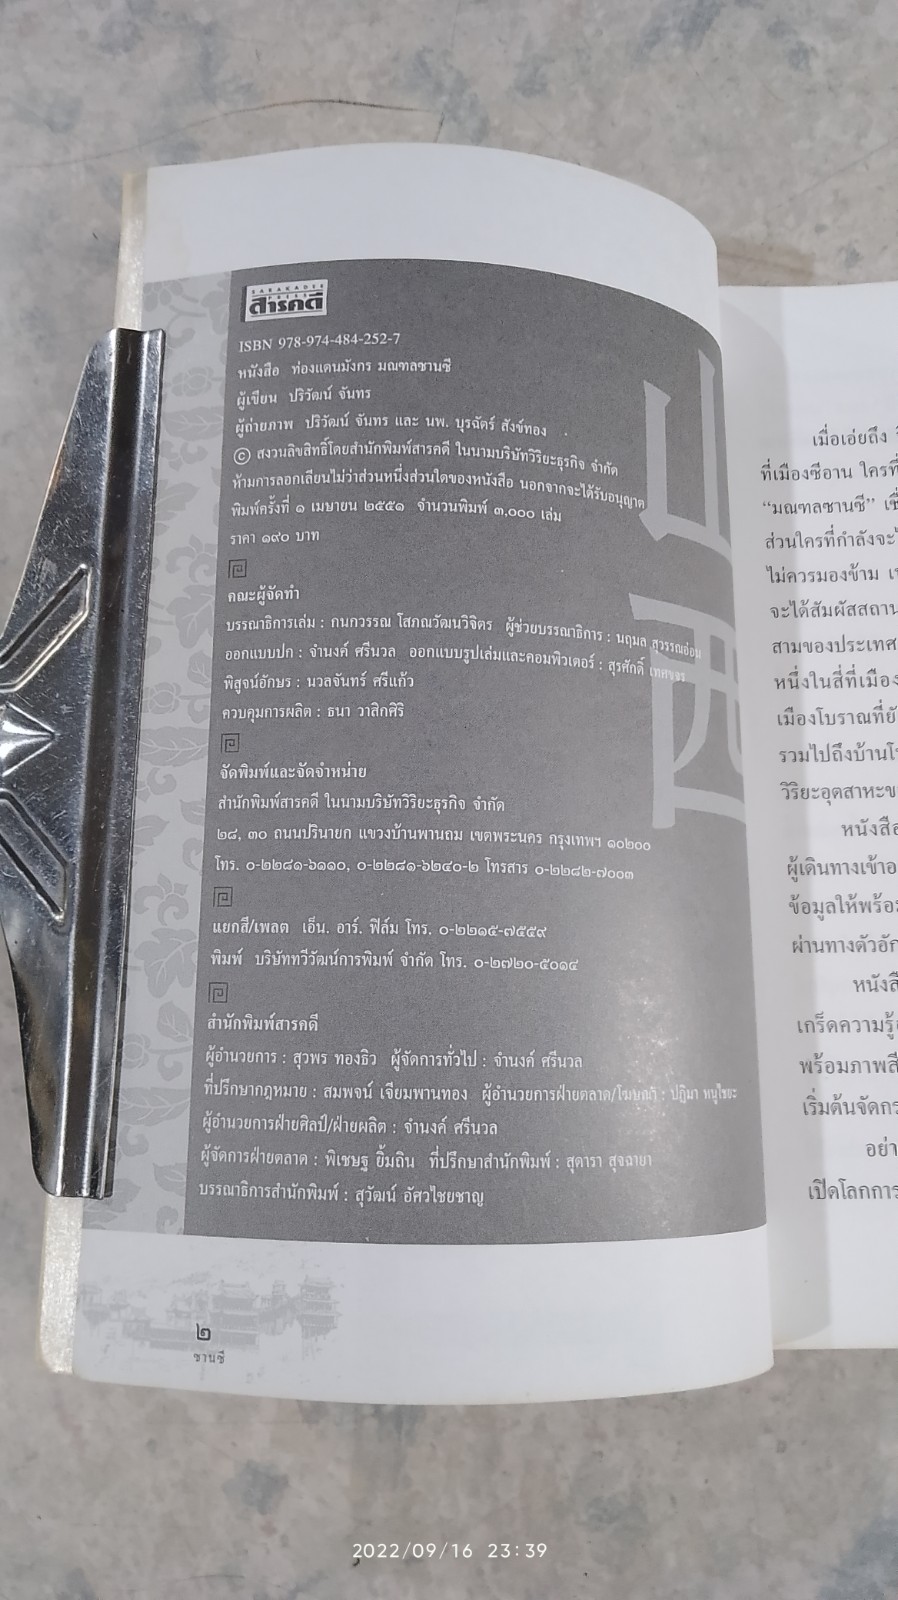 SARAKADEE
PRESS
สารคดี
ISBN 978-974-484-252-7
หนังสือ ท่องแดนมังกร มณฑลซานซี
ผู้เขียน ปริวัฒน์ จันทร
ผู้ถ่ายภาพ ปริวัฒน์ จันทร และ นพ. บุรฉัตร์ สังข์ทอง
© สงวนลิขสิทธิ์โดยสำนักพิมพ์สารคดี ในนามบริษัทวิริยะธุรกิจ จำกัด
ห้ามการลอกเลียนไม่ว่าส่วนหนึ่งส่วนใดของหนังสือ นอกจากจะได้รับอนุญาต
พิมพ์ครั้งที่ ๑ เมษายน ๒๕๕๑ จำนวนพิมพ์ ๓,๐๐๐ เล่ม
ราคา ๑๙๐ บาท
คณะผู้จัดทำ
บรรณาธิการเล่ม : กนกวรรณ โสภณวัฒนวิจิตร ผู้ช่วยบรรณาธิการ : นฤมล สุวรรณอ่อน
ออกแบบปก : จำนงค์ ศรีนวล ออกแบบรูปเล่มและคอมพิวเตอร์ : สุรศักดิ์ เทศขจร
พิสูจน์อักษร : นวลจันทร์ ศรีแก้ว
ควบคุมการผลิต : ธนา วาสิกศิริ
จัดพิมพ์และจัดจำหน่าย
สำนักพิมพ์สารคดี ในนามบริษัทวิริยะธุรกิจ จำกัด
๒๘, ๓๐ ถนนปรินายก แขวงบ้านพานถม เขตพระนคร กรุงเทพฯ ๑๐๒๐๐
โทร. ๐-๒๒๘๑-๖๑๑๐, ๐-๒๒๘๑-๖๒๔๐-๒ โทรสาร ๐-๒๒๘๒-๗๐๐๓
แยกสี/เพลต เอ็น. อาร์. ฟิล์ม โทร. ๐-๒๒๑๕-๗๕๕๙
พิมพ์ บริษัททวีวัฒน์การพิมพ์ จำกัด โทร. ๐-๒๗๒๐-๕๐๑๔
สำนักพิมพ์สารคดี
ผู้อำนวยการ : สุวพร ทองธิว ผู้จัดการทั่วไป : จำนงค์ ศรีนวล
ที่ปรึกษากฎหมาย : สมพจน์ เจียมพานทอง ผู้อำนวยการฝ่ายตลาด/โฆษณา : ปฏิมา หนูไชยะ
ผู้อำนวยการฝ่ายศิลป์/ฝ่ายผลิต : จำนงค์ ศรีนวล
ผู้จัดการฝ่ายตลาด : พิเชษฐ ยิ้มถิน ที่ปรึกษาสำนักพิมพ์ : สุดารา สุจฉายา
บรรณาธิการสำนักพิมพ์ : สุวัฒน์ อัศวไชยชาญ
山
西
๒
ซานซี
เมื่อเอ่ยถึง
ที่เมืองซีอาน ใครที่
“มณฑลซานซี”
ส่วนใครที่กำลังจะ
ไม่ควรมองข้าม
จะได้สัมผัสสถาน
สามของประเทศ
หนึ่งในสี่ที่เมือง
เมืองโบราณที่ยั
รวมไปถึงบ้าน
วิริยะอุตสาหะ
หนังสือ
ผู้เดินทางเข้า
ข้อมูลให้พร้อม
ผ่านทางตัวอัก
หนังสื
เกร็ดความรู้
พร้อมภาพสี
เริ่มต้นจัด
อย่า
เปิดโลกการ
2022/09/16 23:39